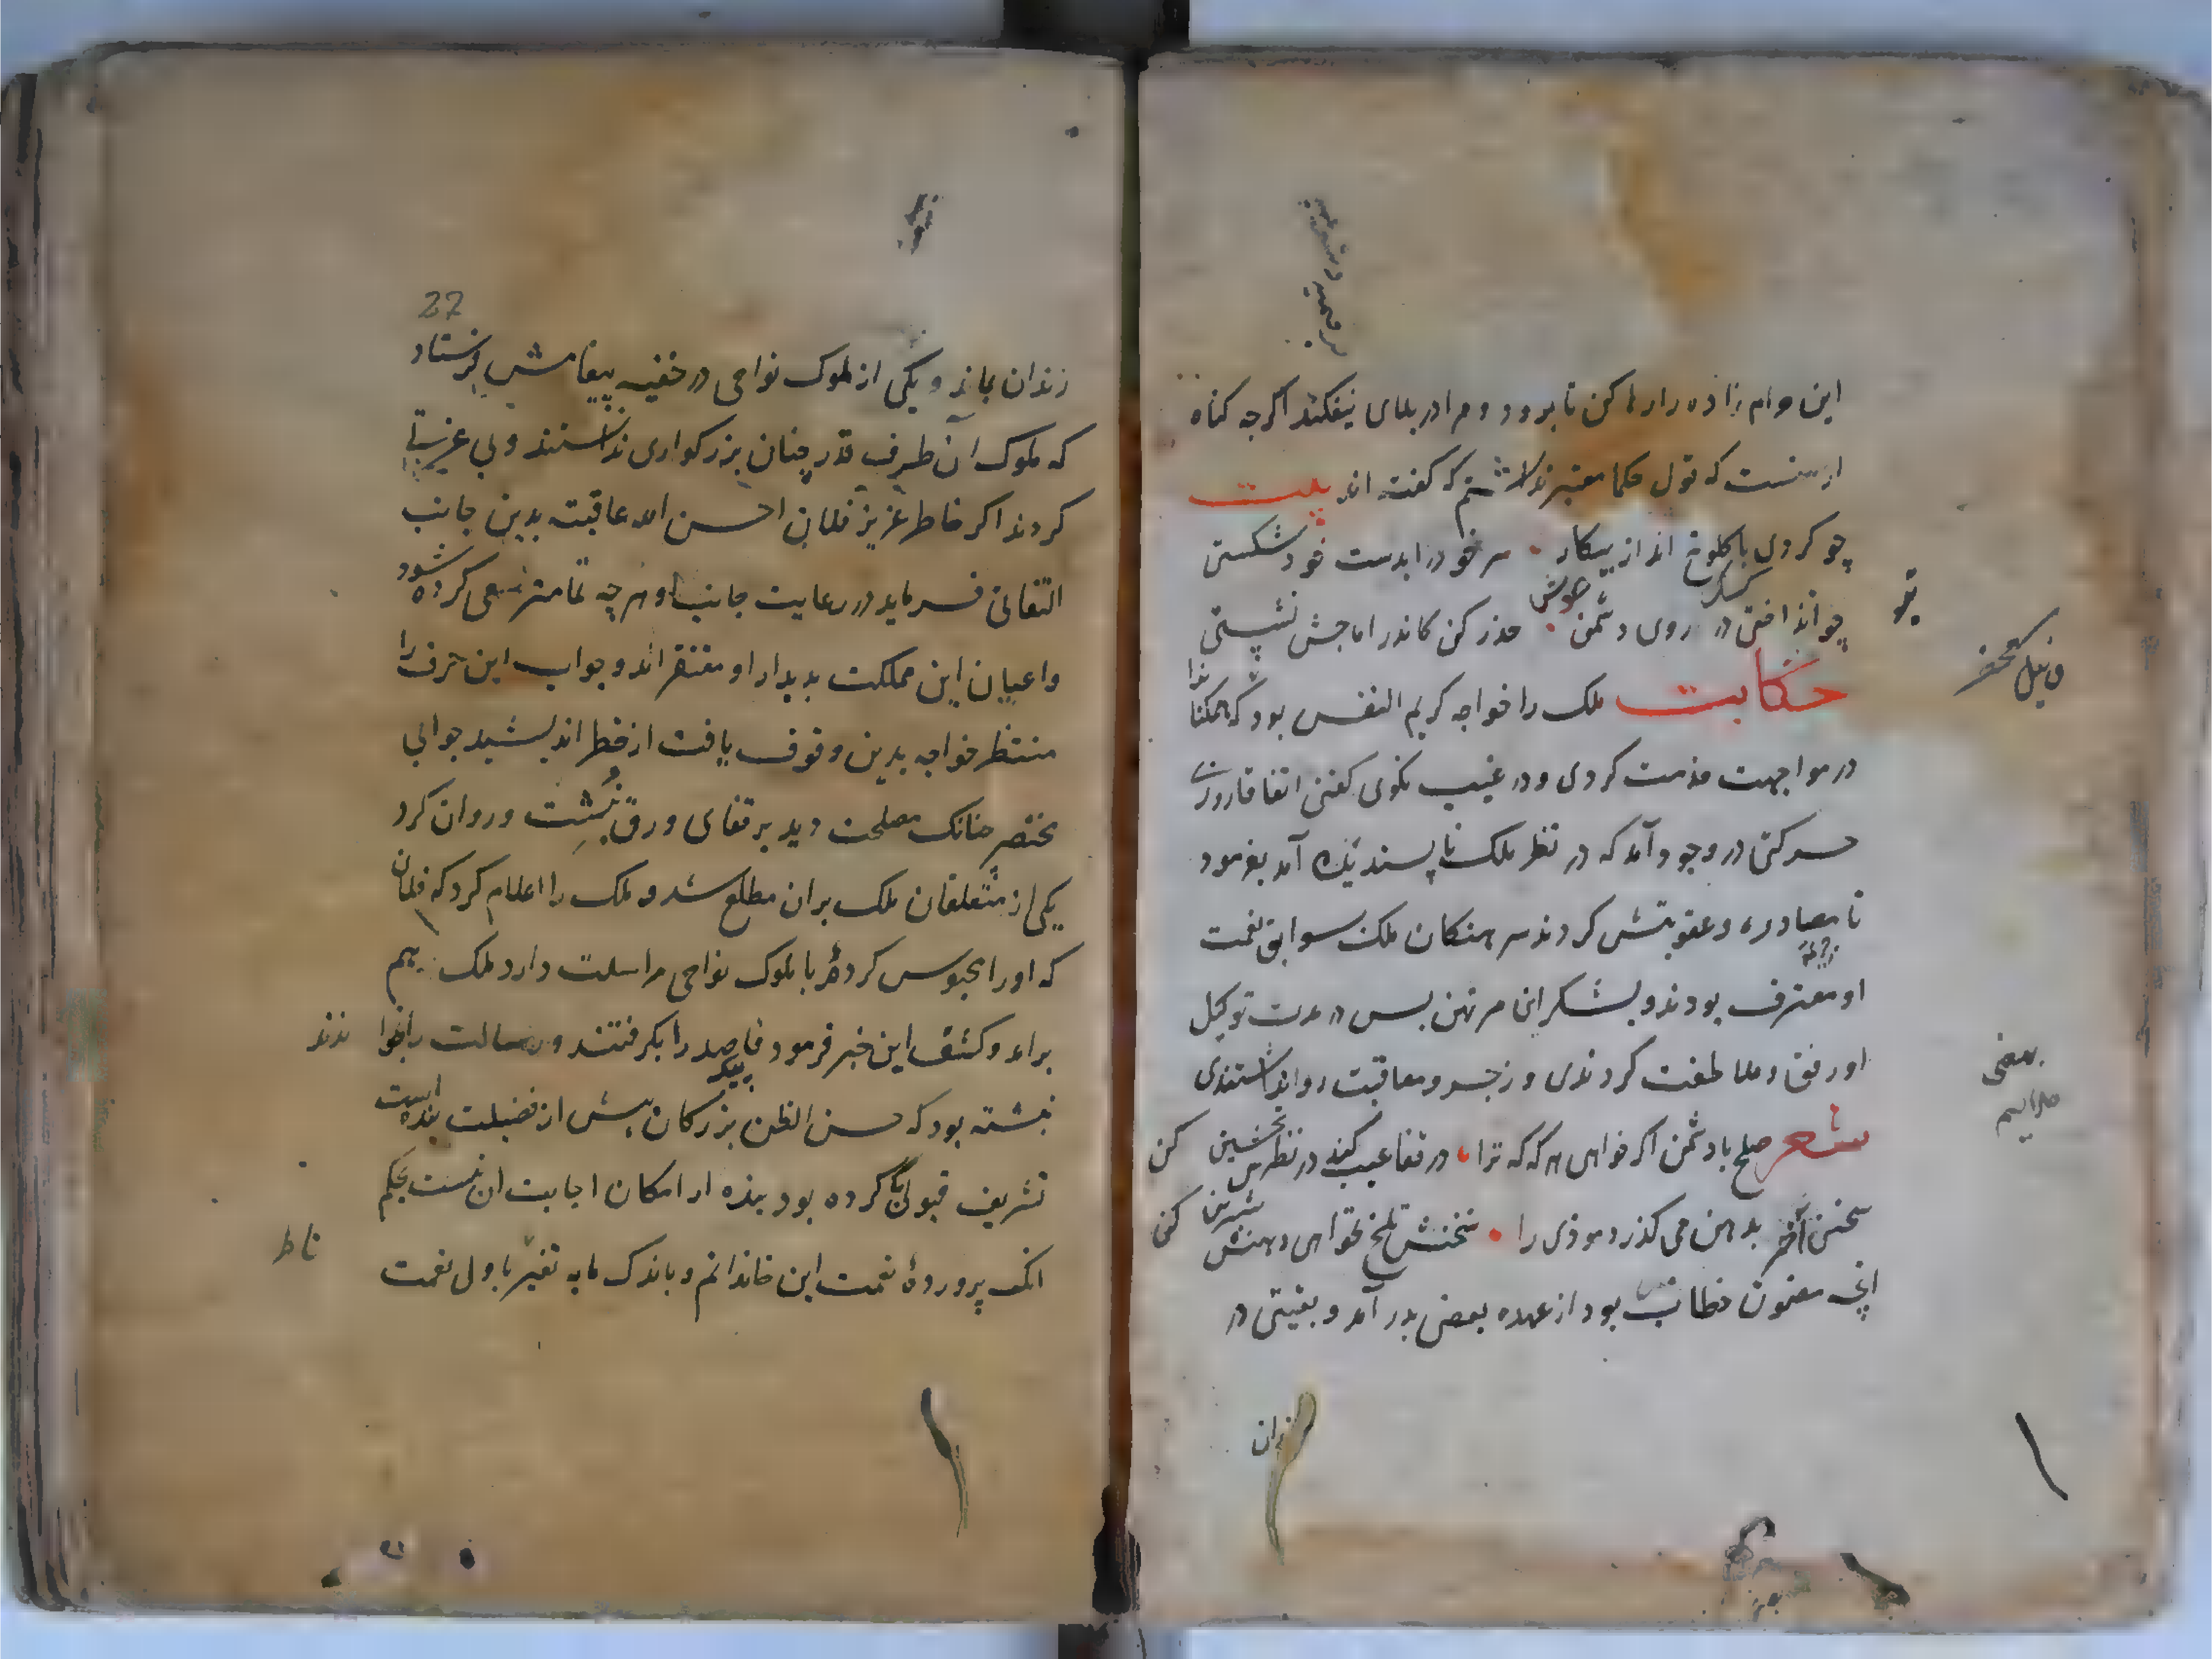 این حرام زاده را رها کن تا برود و مرا در بلای نیفکند اگرچه گناه
از منست که قول حکما معتبر نداشتم که گفته اند بیت
چو کردی با کلوخ انداز پیکار سر خود را بدست خود شکستی
چو انداختی در روی دشمن حذر کن کاندر اماجش نشستی
حکایت ملک را خواجه کریم النفس بود که همکنانرا
در مواجهت خدمت کردی و در غیبت نکوی گفتی اتفاقا روزی
حرکتی در وجود آمد که در نظر ملک ناپسندیده آمد بفرمود
تا مصادره و عقوبتش کردند سرهنکان ملک سوابق نعمت
او معترف بودند و بشکر ان مرتهن بس در مدت توکیل
او رفق و ملاطفت کردندی و زجر و معاقبت روا نداشتندی
شعر صلح با دشمن اکر خواهی هر که که ترا در قفا عیب کند در نظرش تحسین کن
سخن آخر بدهن می گذرد موذی را سخنش تلخ نخواهی دهنش شیرین کن
انچه مضمون خطاب بود از عهده بعضی بدر آمد و بقیتی در
زندان
بعضی
ملایم
27
زندان بماند و یکی از ملوک نواحی در خفیه پیغامش فرستاد
که ملوک آن طرف قدر چنان بزرکواری نداستند و بی عزتی
کردند اکر خاطر عزیز فلان احسن الله عاقبته بدین جانب
التفاتی فرماید در رعایت جانب او هرچه تمامتر سعی کرده شود
واعیان این مملکت بدیدار او مفتقراند و جواب این حرف را
منتظر خواجه بدین وقوف یافت از خطر اندیشید جوابی
مختصر چنانک مصلحت دید بر قفای ورق نبشت و روان کرد
یکی از متعلقان ملک بران مطلع شد و ملک را اعلام کرد که فلان
که اورا محبوس کرده با ملوک نواحی مراسلت دارد ملک بهم
برامد و کشف این خبر فرمود قاصد را بکرفتند و رسالت را بخوا ندند
نبشته بود که حسن الظن بزرکان بیش از فضیلت بنده است
تشریف قبولی که کرده بود بنده را امکان اجابت ان نیست بحکم
انک پروردهٔ نعمت این خاندانم و باندک مایه تغیر با ولی نعمت